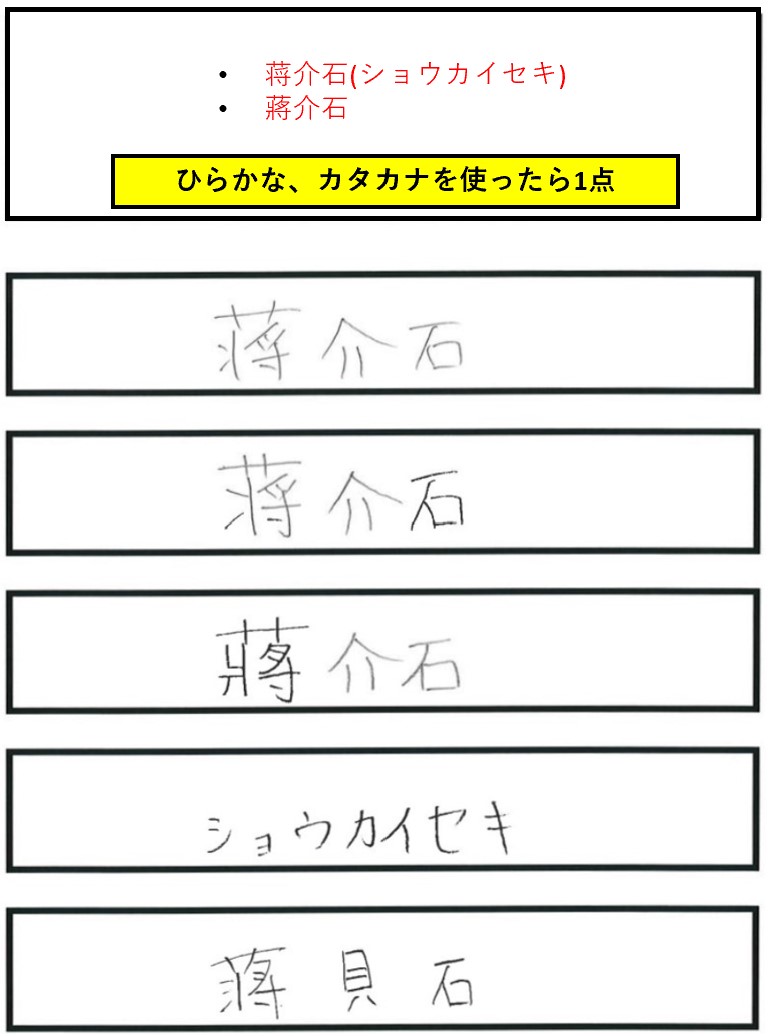 • 蒋介石(ショウカイセキ)
• 蔣介石
ひらかな、カタカナを使ったら1点
蒋介石
蒋介石
蔣介石
ショウカイセキ
蒋貝石